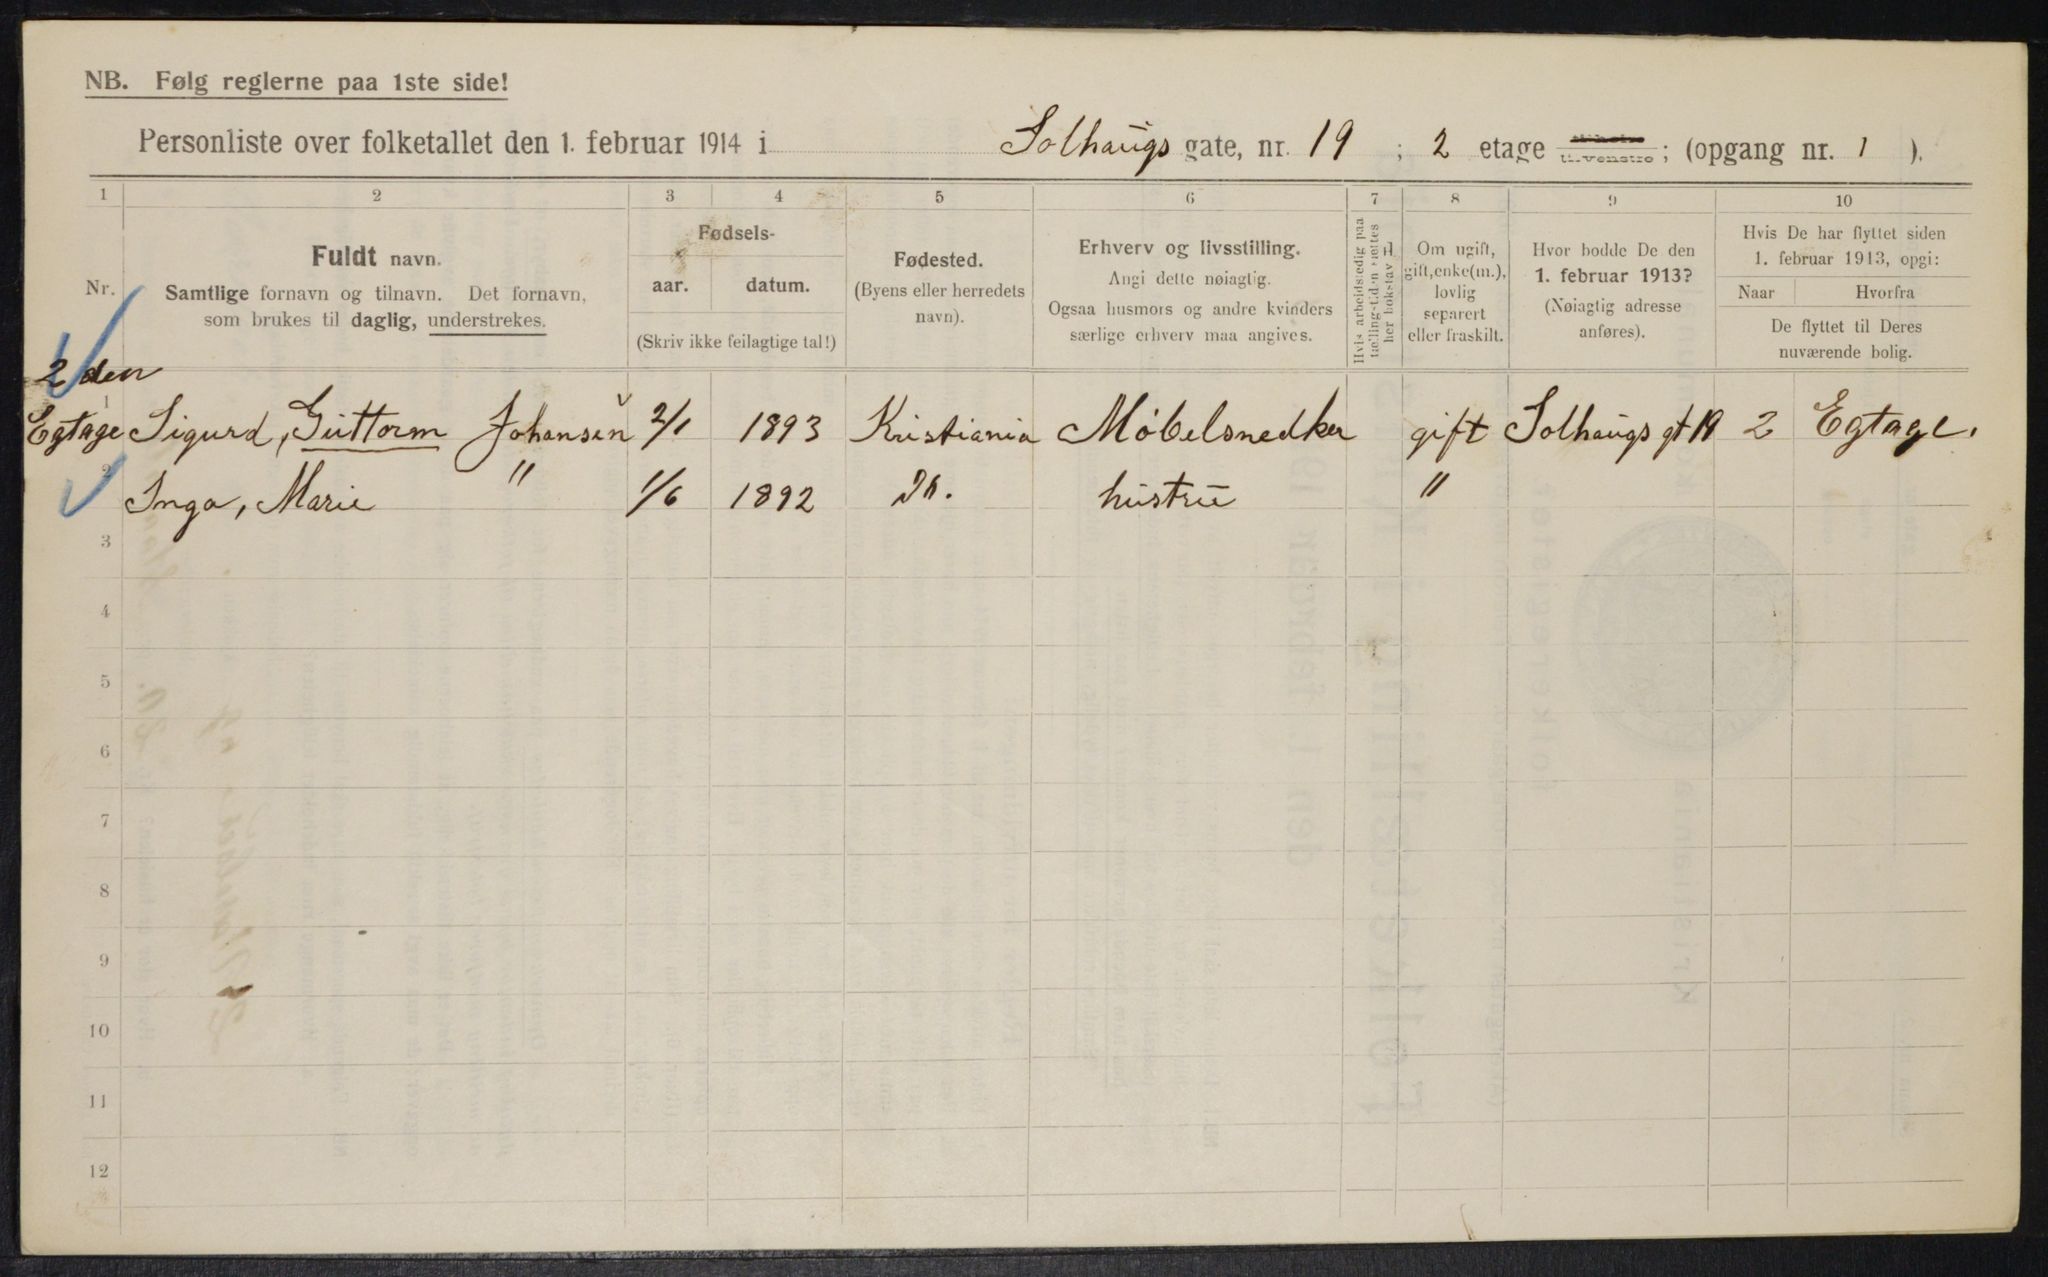 NB. Følg reglerne paa 1ste side!
Personliste over folketallet den 1. februar 1914 i Solhaugs gate, nr. 19 ; 2 etage tilvenstre ; (opgang nr. 1 ).
1 2 3 4 5 6 7 8 9 10
Nr.
Fuldt navn.
Samtlige fornavn og tilnavn. Det fornavn,
som brukes til daglig, understrekes.
Fødsels-
aar. datum.
(Skriv ikke feilagtige tal!)
Fødested.
(Byens eller herredets
navn).
Erhverv og livsstilling.
Angi dette nøiagtig.
Ogsaa husmors og andre kvinders
særlige erhverv maa angives.
Hvis arbeidsledig paa
tællingstiden sættes
her bokstav
Om ugift,
gift, enke(m.),
lovlig
separert
eller fraskilt.
Hvor bodde De den
1. februar 1913?
(Nøiagtig adresse
anføres).
Hvis De har flyttet siden
1. februar 1913, opgi:
Naar Hvorfra
De flyttet til Deres
nuværende bolig.
2 den
Egtage 1 Sigurd, Guttorm Johansen 2/1 1893 Kristiania Møbelsnedker gift Solhaugs gt 19 2 Egtage.
2 Inga, Marie " 1/6 1892 Do. hustru "
3
4
5
6
7
8
9
10
11
12